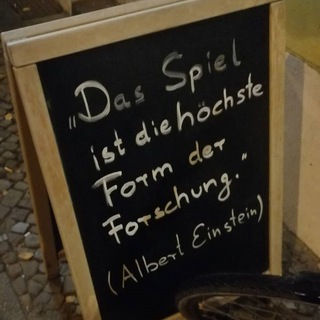 „Das Spiel
ist die höchste
Form der
Forschung."
(Albert Einstein)